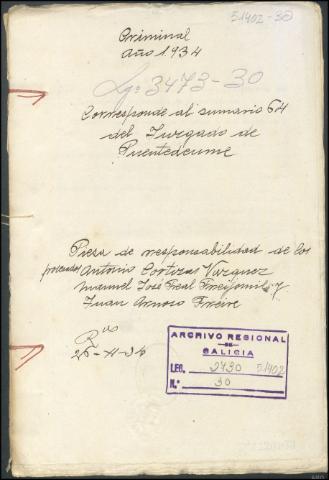 51402-30
Criminal
Año 1.934
Lg: 3473-30
Corresponde al sumario 64
del Juzgado de
Puentedeume
Pieza de responsabilidad de los
procesados Antonio Cortizas Vazquez
Manuel José Leal Freijomil y
Juan Arnoso Freire
26-XI-34
ARCHIVO REGIONAL
DE
GALICIA
LEG. 2430 51402
N.º 30